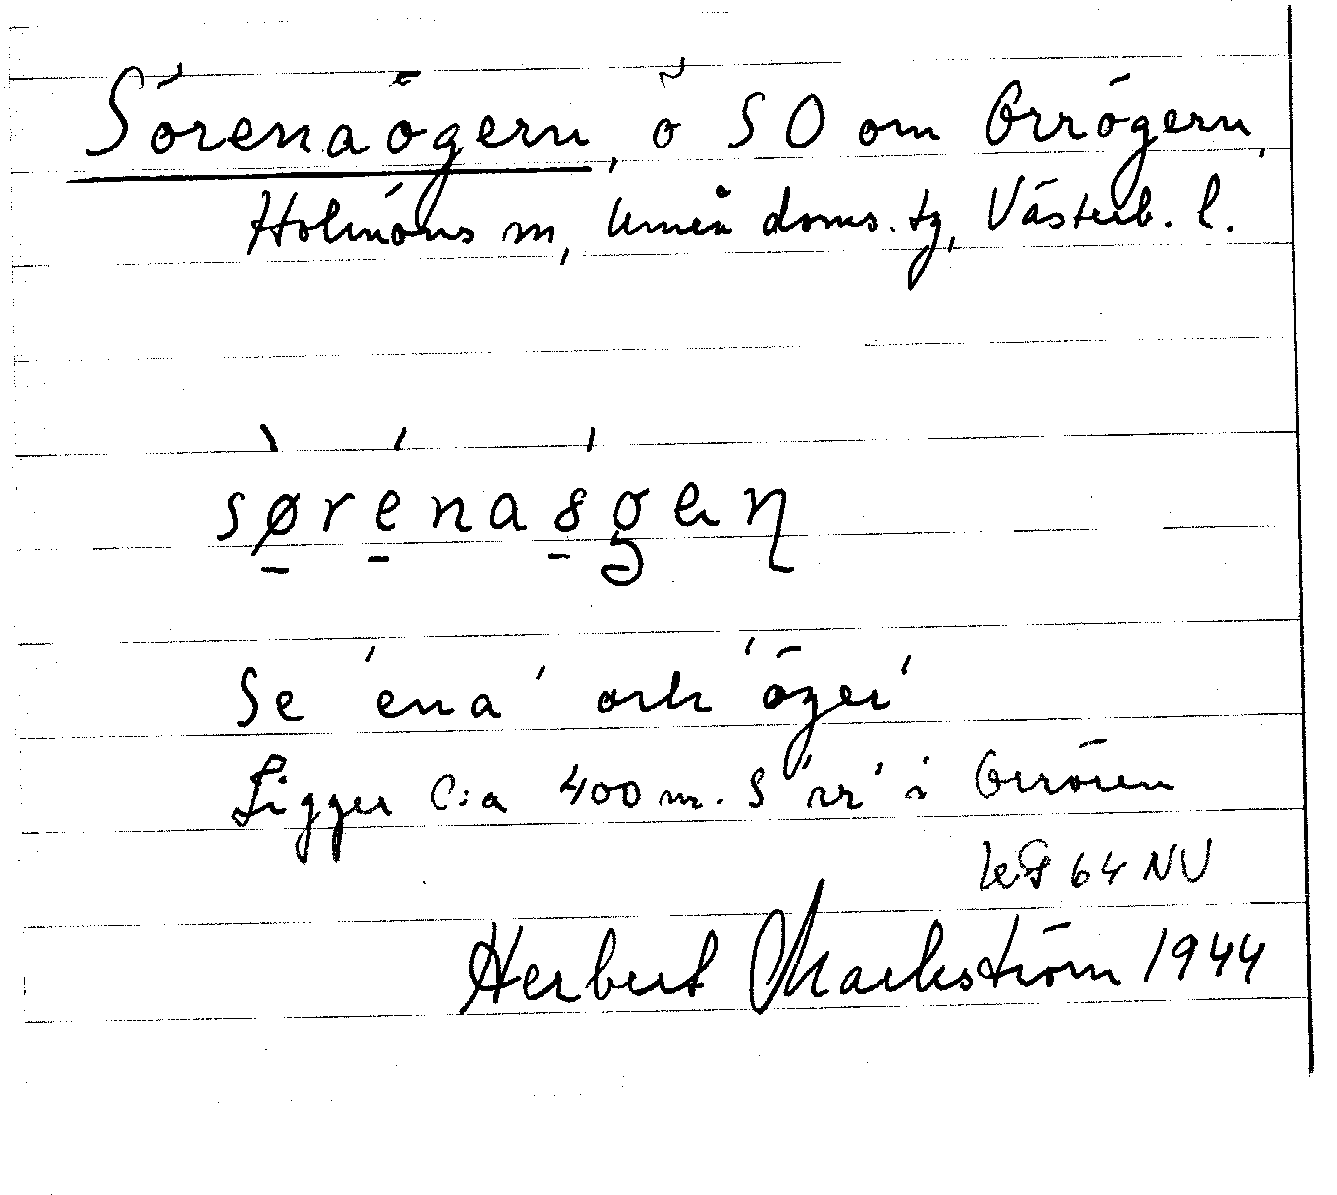 Sörenaögern, ö SO om Orrögern,
Holmöns sn, Umeå doms. tg, Västerb. l.
Se 'ena' och 'öger'
Ligger c:a 400 m. S 'rr' i Orrören
Herbert Markström 1944